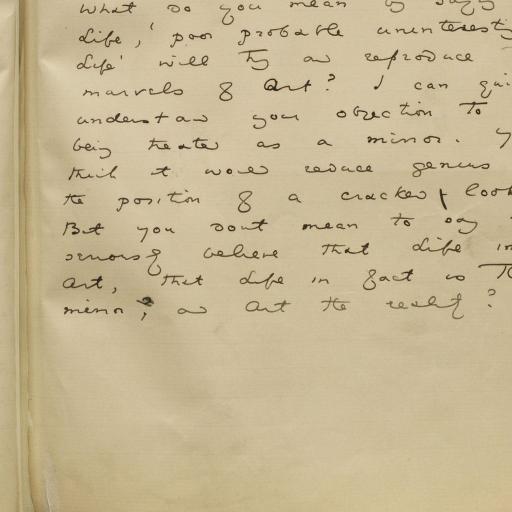 What do you mean by
Life, 'poor probable uninteresting
Life' will try and reproduce
marvels of Art? I can qui
understand your objection to
being treated as a mirror. Y
think it would reduce genius
the position of a cracked look
But you don't mean to say
seriously believe that Life im
Art, that Life in fact is The
mirror, and Art the reality?